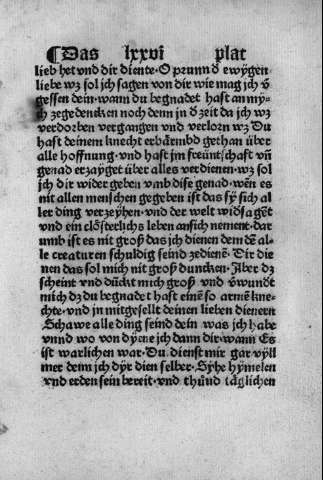 ¶Das lxxvi plat
lieb het vnd dir diente· O prunn ď ewygen
liebe wz sol jch sagen von dir wie mag jch v̈
gessen dein· wann du begnadet hast an my⸗
ch zegedencken noch denn jn ď zeit da jch wz
verdorben vergangen vnd verlorn wz Du
hast deinem knecht erbärmbd gethan über
alle hoffnung· vnd hast jm freüntschafft vn̄
genad erzayget über alles verdienen· wz sol
jch dir wider geben vmb dise genad· wen̄ es
nit allen menschen gegeben ist das sy̋ sich al
ler ding verzeyhen· vnd der welt widsagēt
vnd ein clo̊sterlichs leben ansich nement· dar
umb ist es nit groß das jch dienen dem dē al⸗
le creaturen schuldig seind zedienē· Dir die
nen das sol mich nit groß duncken· Aber dz
scheint vnd dückt mich groß vnd v̈wundt
mich dz du begnadet hast einē so armē kne⸗
chte· vnd jn mitgesellt deinen lieben dienern
Schawe alle ding seind dein was jch habe
vnnd wo von dyene jch dann dir· wann Es
ist warlichen war· Du dienst mir gar vyll
mer denn jch dy̋r dien selber· Sy̋he hy̋melen
vnd erden sein bereit· vnd thůnd täglichen